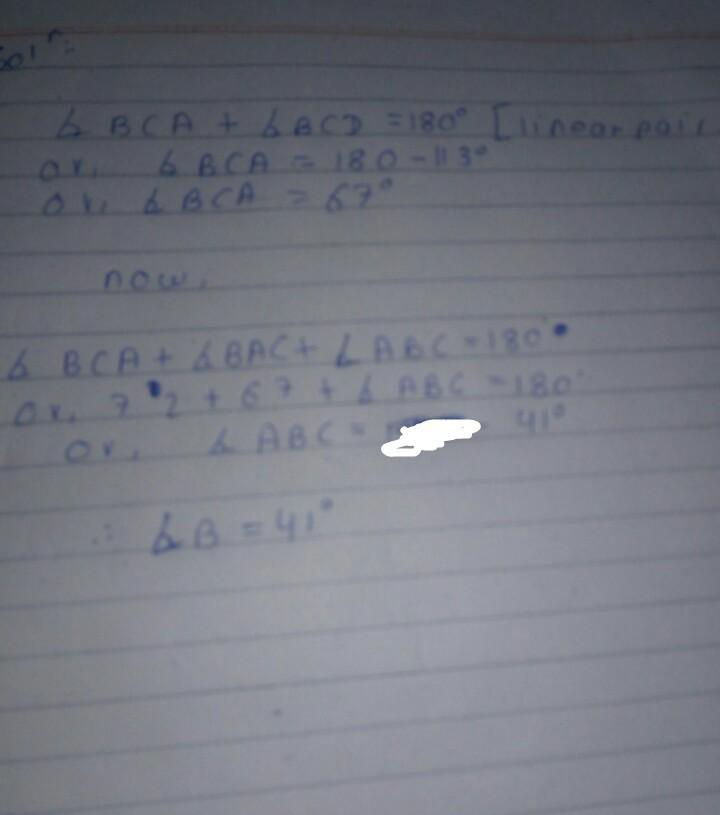 Solⁿ:
∠ BCA + ∠ ACD = 180° [linear pair
or, ∠ BCA = 180 - 113°
or, ∠ BCA = 67°
now,
∠ BCA + ∠BAC + ∠ABC = 180°
or, 72 + 67 + ∠ ABC = 180°
or, ∠ ABC = 41°
∴ ∠B = 41°